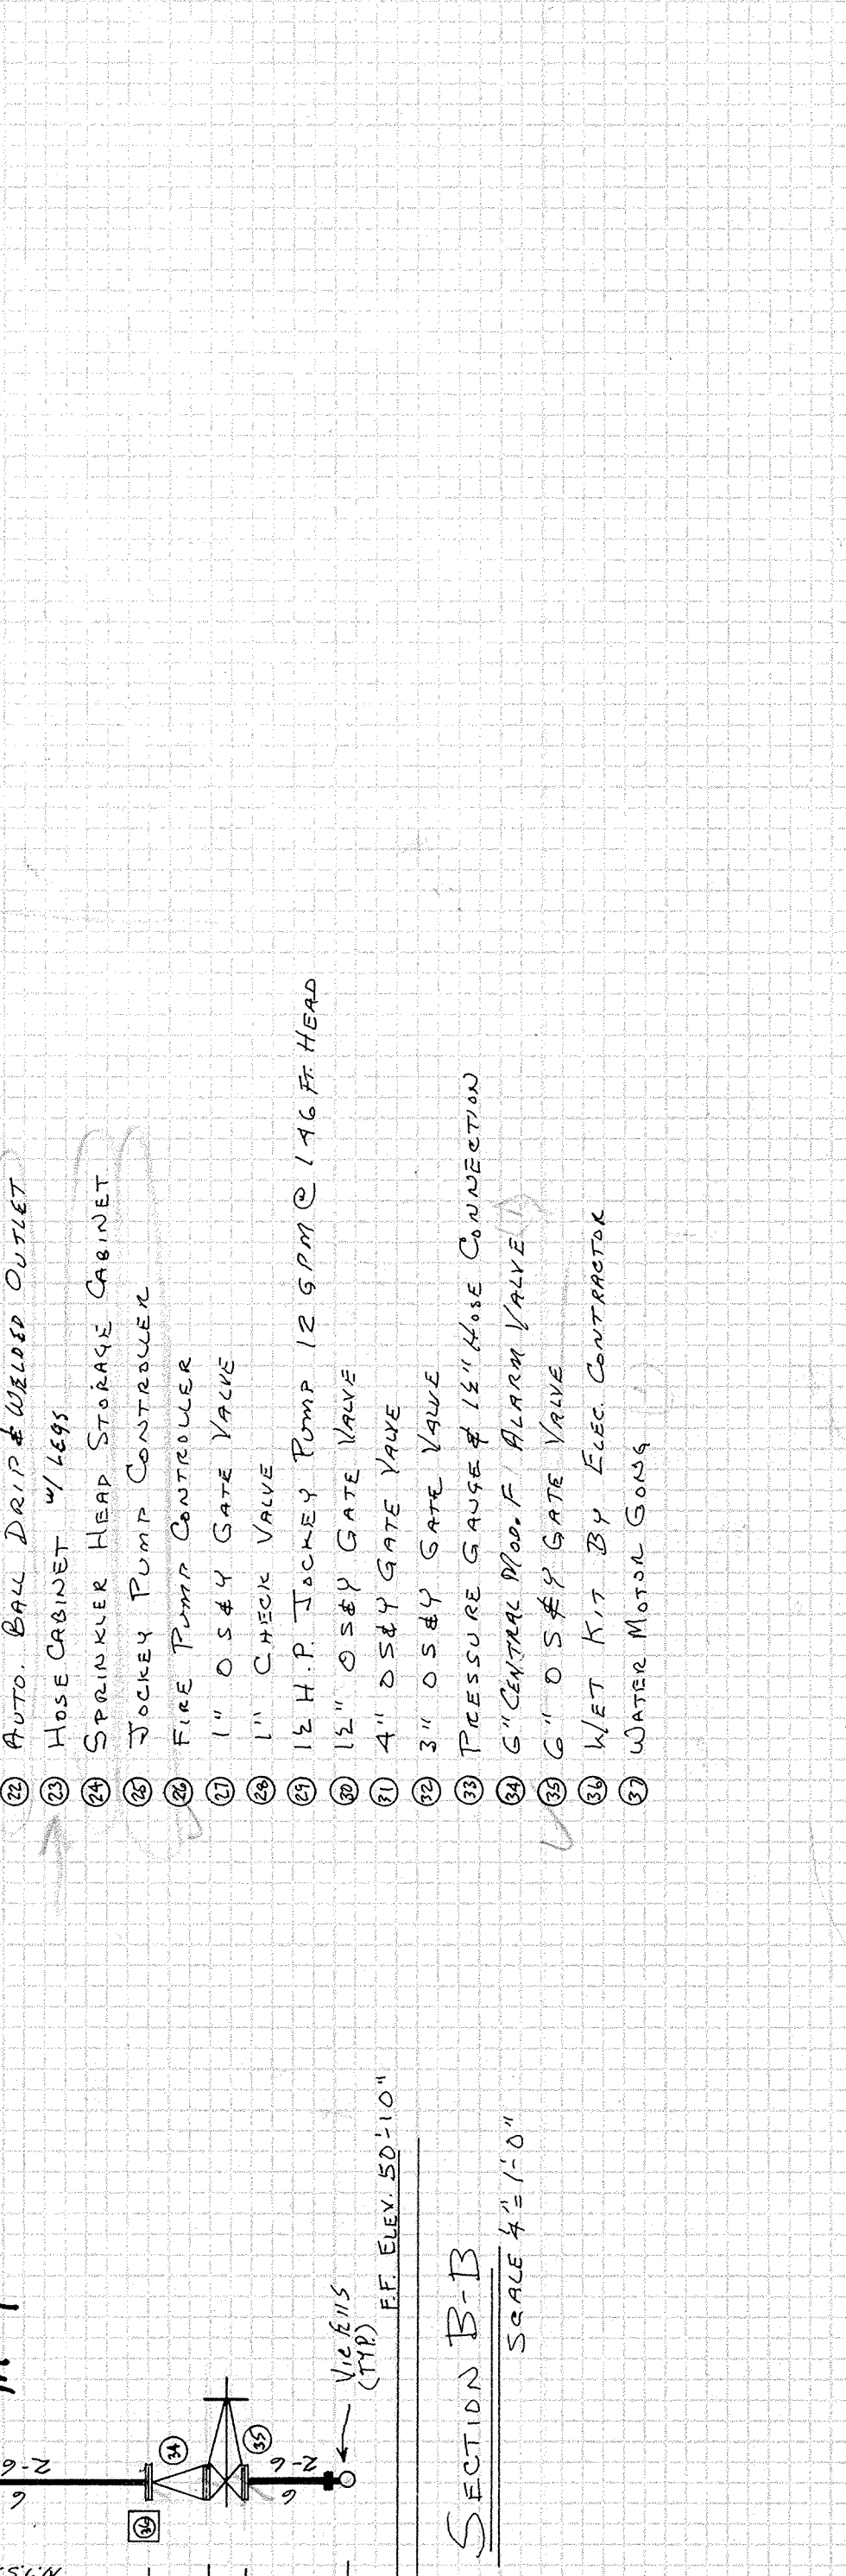 22 AUTO. BALL DRIP & WELDED OUTLET
23 HOSE CABINET W/ LEGS
24 SPRINKLER HEAD STORAGE CABINET
25 JOCKEY PUMP CONTROLLER
26 FIRE PUMP CONTROLLER
27 1" OS&Y GATE VALVE
28 1" CHECK VALVE
29 1½ H.P. JOCKEY PUMP 12 GPM @ 146 FT. HEAD
30 1½" OS&Y GATE VALVE
31 4" OS&Y GATE VALVE
32 3" OS&Y GATE VALVE
33 PRESSURE GAUGE & 1½" HOSE CONNECTION
34 6" CENTRAL MOD. F ALARM VALVE
35 6" OS&Y GATE VALVE
36 WET KIT BY ELEC. CONTRACTOR
37 WATER MOTOR GONG
2-6
6
34
36
35
2-6
6
VIC ELLS
(TYP.)
F.F. ELEV. 50'-10"
SECTION B-B
SCALE ¼"=1'-0"